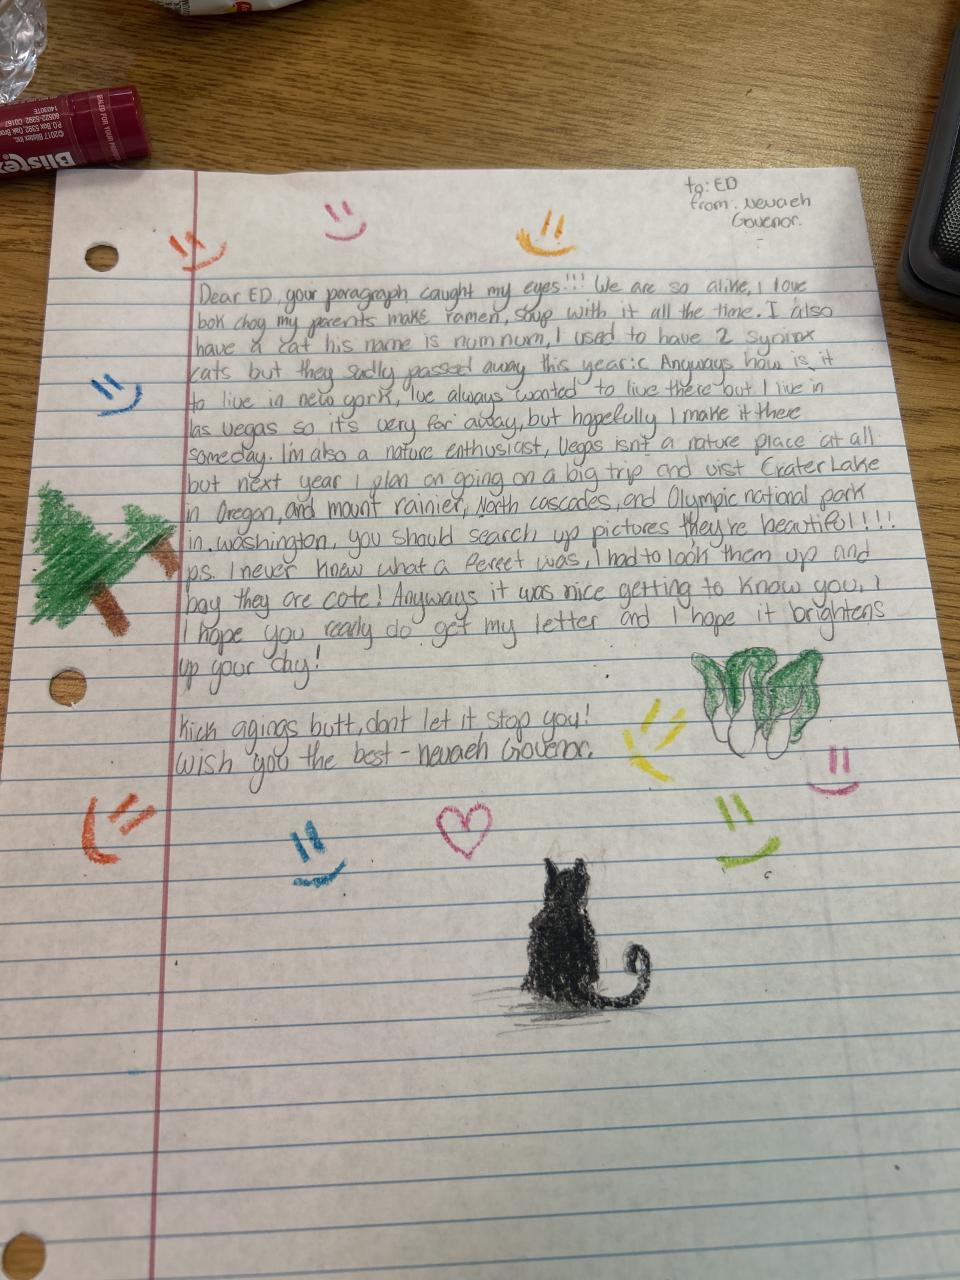 Blistex
©2017 Blistex Inc.
P.O. Box 5392, Oak Broo
60522-5392 C0167
14030TE
SEALED FOR YOUR PRO
to: ED
from: Nevaeh
Govenor.
Dear ED, your paragraph caught my eyes!!! We are so alike, i love
bok choy my parents make ramen, soup with it all the time. I also
have a cat his name is numnum, I used to have 2 syninx
cats but they sadly passed away this year :c Anyways how is it
to live in new york, I've always wanted to live there but I live in
las vegas so it's very far away, but hopefully I make it there
someday. I'm also a nature enthusiast, Vegas isn't a nature place at all
but next year I plan on going on a big trip and vist Crater Lake
in Oregon, and mount rainier, North cascades, and Olympic national park
in washington, you should search up pictures they're beautiful!!!!
ps. I never knew what a fereet was, I had to look them up and
boy they are cute! Anyways it was nice getting to know you, I
I hope you really do get my letter and I hope it brightens
up your day!
Kick agings butt, dont let it stop you!
wish you the best - nevaeh Govenor.